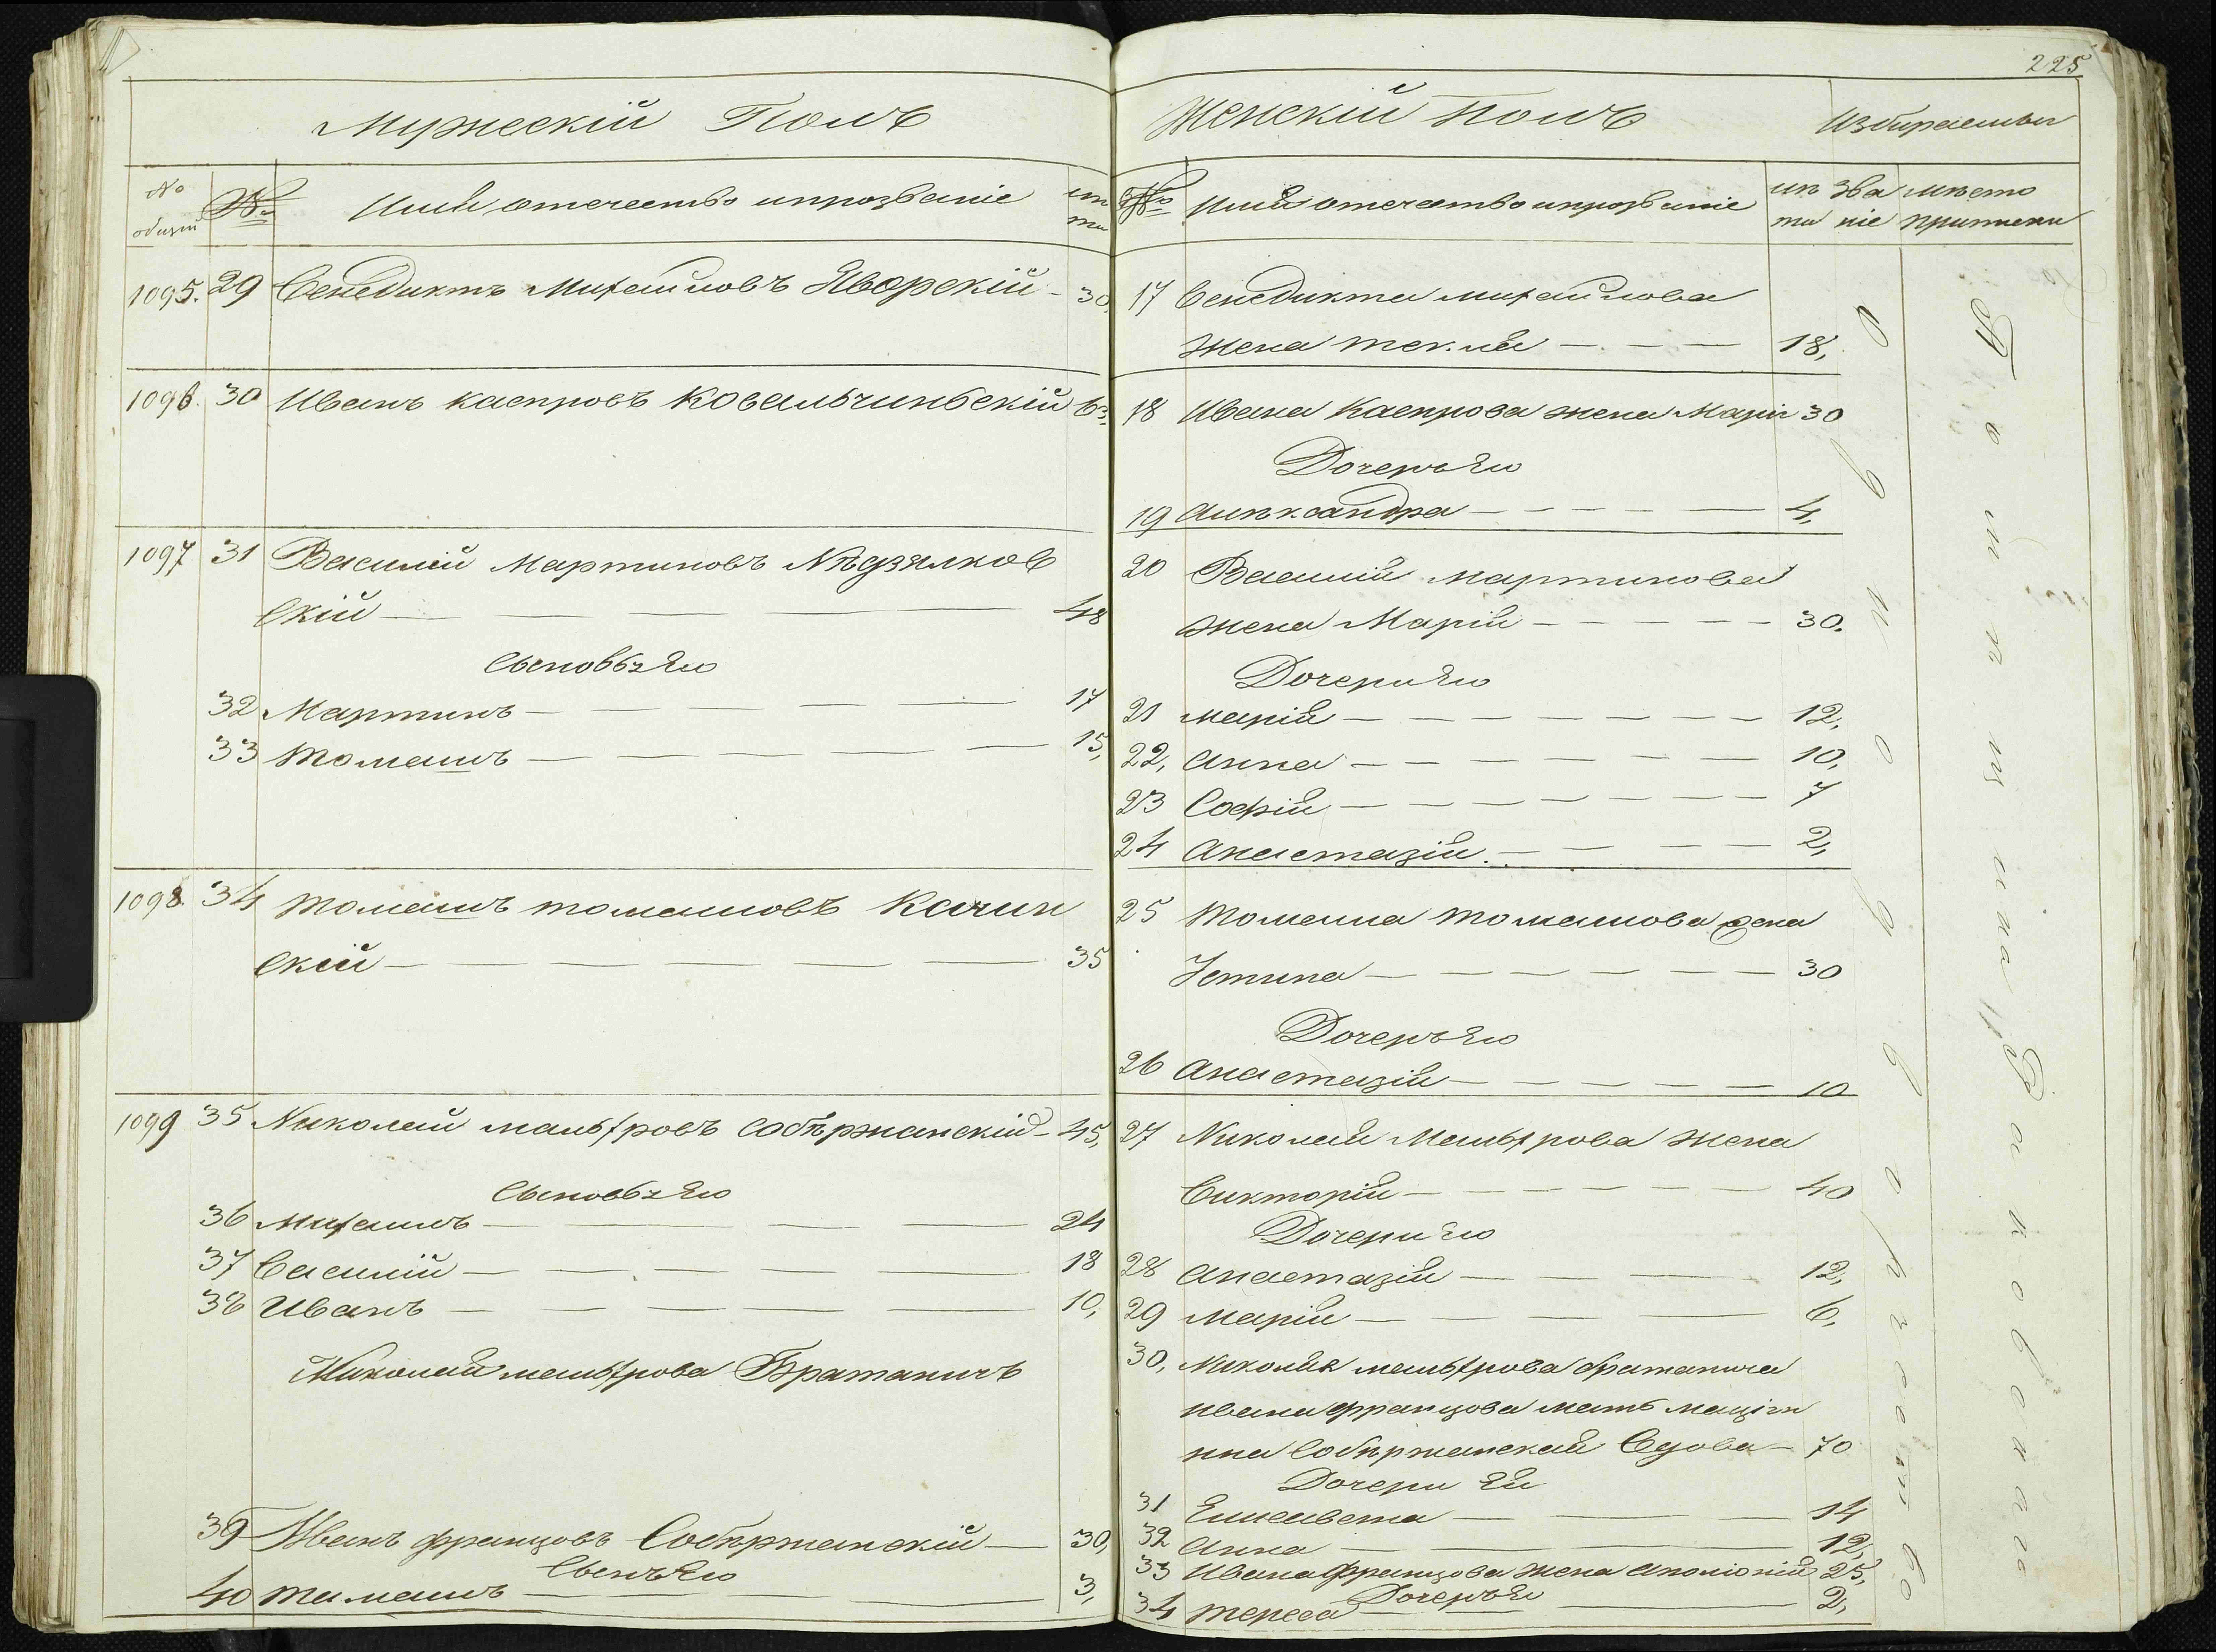 225
Мужескій Полъ
№ общій № Имя отечество ипрозваніе лѣта
1095. 29 Венедиктъ Михайловъ Яворскій - 30,
1096. 30 Иванъ каспровъ Ковальчиньскій 63.
1097 31 Василій Мартиновъ Нѣдзялков
скій — 48
Сыновья Его
32 Мартинъ — 17
33 Томашъ — 15,
1098. 34 Томашъ томашовъ Качин
скій — 35
1099 35 Николай мальхровъ Собѣржанскій - 45,
Сыновья Его
36 Михаилъ — 24
37 Василій — 18
38 Иванъ — 10,
Николая мальхрова Братаничъ
39 Иванъ францовъ Собѣржанскій — 30,
Сынъ Его
40 Тамашъ — 3,
Женскій Полъ Избираемыи
№ Имя отечество ипрозваніе лѣ та зва ніе мѣсто приписки
17 Венедикта михайлова
жена текля — 18,
18 Ивана Каспрова жена Марія 30
Дочерь Его
19 Алѣксандра — 4,
20 Василія Мартинова
жена Марія — 30.
Дочери Его
21 марія — 12,
22, Анна — 10,
23 Софія — 7
24 Анастазія. — 2,
25 Томаша томашова жена
Устина — 30
Дочерь Его
26 Анастазія — 10
27 Николая Мальхрова жена
Викторія — 40
Дочери Его
28 Анастазія — 12,
29 Марія — 6,
30, Николая мальхрова братанича
ивана францова мать
Собѣржанская Вдова — 70
Дочери Ея
31 Елисавета — 14
32 Анна — 12,
33 Ивана францова жена Аполіонія 25,
Дочерь Его
34 тереса — 2,
Однодворческо